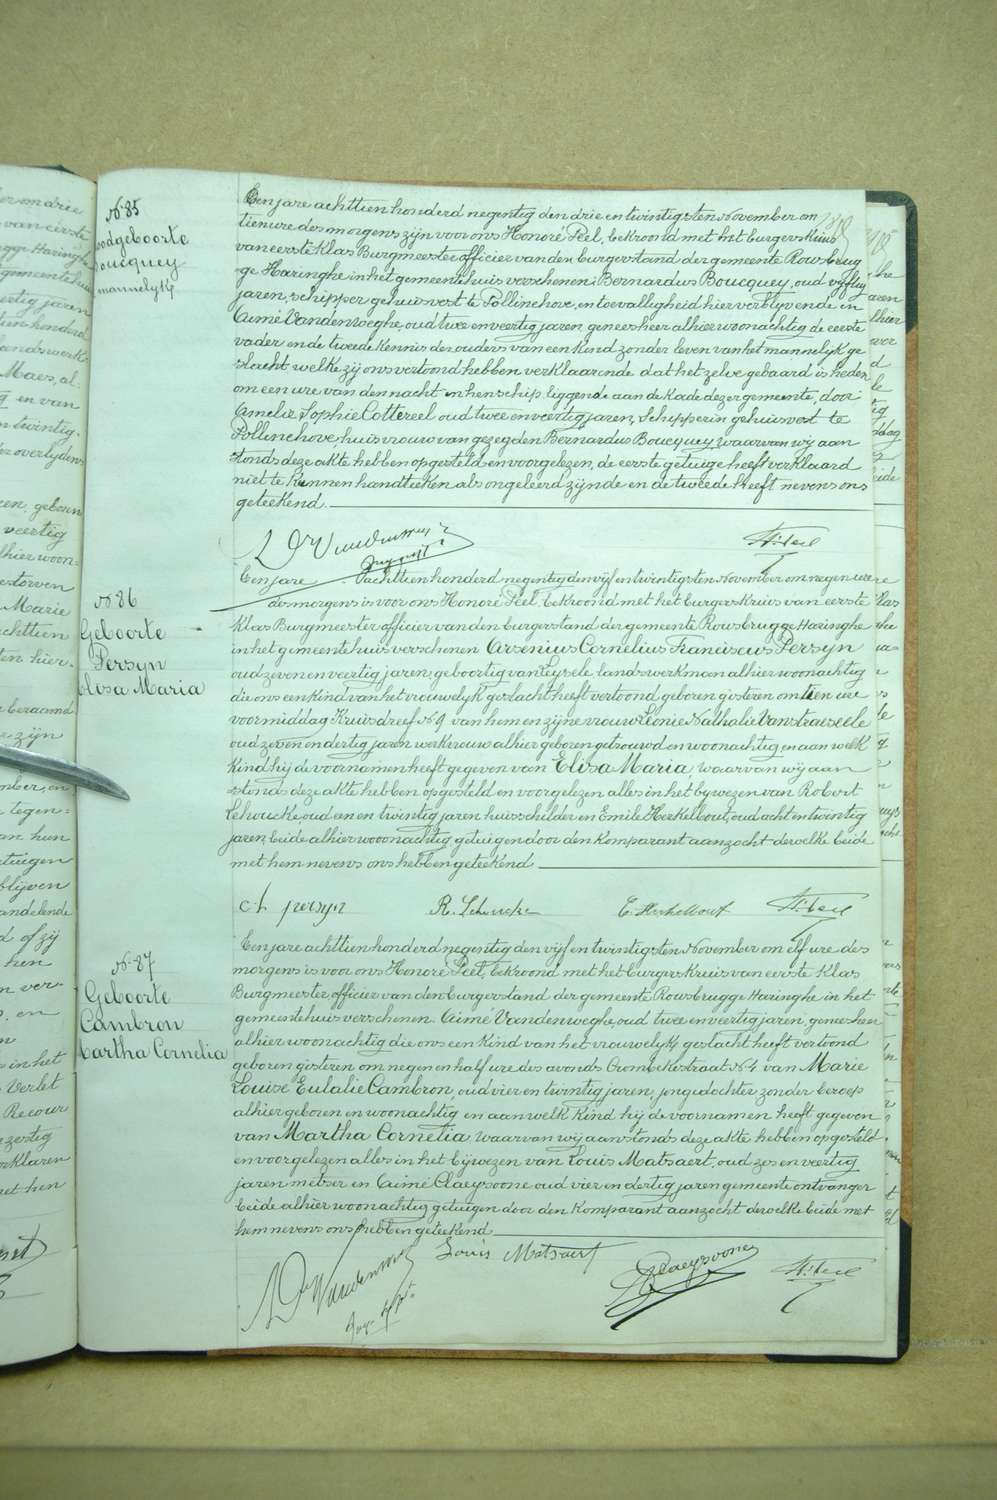 N° 85
Doodgeboorte
Boucquey
mannelijk
Een jare achttien honderd negentig den drie en twintigsten November om
tien ure des morgens zijn voor ons Honoré Feel, bekroond met het burgerskruis
van eerste klas Burgmeester officier van den burgerstand der gemeente Rousbrug
ge Haringhe in het gemeentehuis verschenen Bernardus Boucquey, oud vyftig
jaren, schipper gehuisvest te Pollinchove, en toevalligheid hier verblyvende en
Aimé Vandenweghe, oud twee en veertig jaren, geneesheer alhier woonachtig de eerste
vader en de tweede kennis der ouders van een kind zonder leven van het mannelyk ge
slacht welke zij ons vertoond hebben verklaarende dat het zelve gebaard is heden
om een ure van den nacht in hen schip liggende aan de kade dezer gemeente, door
Amelie Sophie Cottereel oud twee en veertig jaren, schipperin gehuisvest te
Pollinchove huisvrouw van gezegden Bernardus Boucquey waarvan wy aan
stonds deze akte hebben opgesteld en voorgelezen, de eerste getuige heeft verklaard
niet te kunnen handteeken als ongeleerd zijnde en de tweede heeft nevens ons
geteekend.
N° 86
Geboorte
Persyn
Elisa Maria
Een jare achttien honderd negentig den vijf en twintigsten November om negen ure
des morgens is voor ons Honoré Feel, bekroond met het burgerskruis van eerste
klas Burgmeester officier van den burgerstand der gemeente Rousbrugge Haringhe
in het gemeentehuis verschenen Arsenius Cornelius Franciscus Persyn
oud zeven en veertig jaren, geboortig van Leysele landswerkman alhier woonachtig
die ons een kind van het vrouwelyk geslacht heeft vertoond geboren gisteren om tien ure
voormiddag Kruisdreef N° 9 van hem en zijne vrouw Leonie Nathalie Vanstraeseele
oud zeven en dertig jaren werkvrouw alhier geboren getrouwd en woonachtig en aan welk
kind hij de voornamen heeft gegeven van Elisa Maria, waarvan wij aan
stonds deze akte hebben opgesteld en voorgelezen alles in het bijwezen van Robert
Lehoucke, oud een en twintig jaren huisschilder en Emile Herkelbout, oud acht en twintig
jaren, beide alhier wooonachtig getuigen door den komparant aanzocht derwelke beide
met hem nevens ons hebben geteekend
persyn R. Lehoucke E. Herkelbout
N° 87
Geboorte
Cambron
Martha Cornelia
Een jare achttien honderd negentig den vijf en twintigsten November om elf ure des
morgens is voor ons Honoré Feel, bekroond met het burgerskruis van eerste klas
Burgmeester officier van den burgerstand der gemeente Rousbrugge Haringhe in het
gemeentehuis verschenen Aimé Vandenweghe, oud twee en veertig jaren, geneesheer
alhier woonachtig die ons een kind van het vrouwelyk geslacht heeft vertoond
geboren gisteren om negen en half ure des avonds Crombekestraat N° 4 van Marie
Louise Eulalie Cambron, oud vier en twintig jaren, jonge dochter zonder beroep
alhier geboren en woonachtig en aan welk kind hij de voornamen heeft gegeven
van Martha Cornelia, waarvan wij aanstonds deze akte hebben opgesteld
en voorgelezen alles in het bijwezen van Louis Matsaert, oud zes en veertig
jaren metser en Aimé Claeysoone oud vier en dertig jaren gemeente ontvanger
beide alhier woonachtig getuigen door den komparant aanzocht derwelke beide met
hem nevens ons hebben geteekend
Louis Matsaert Claeysoone